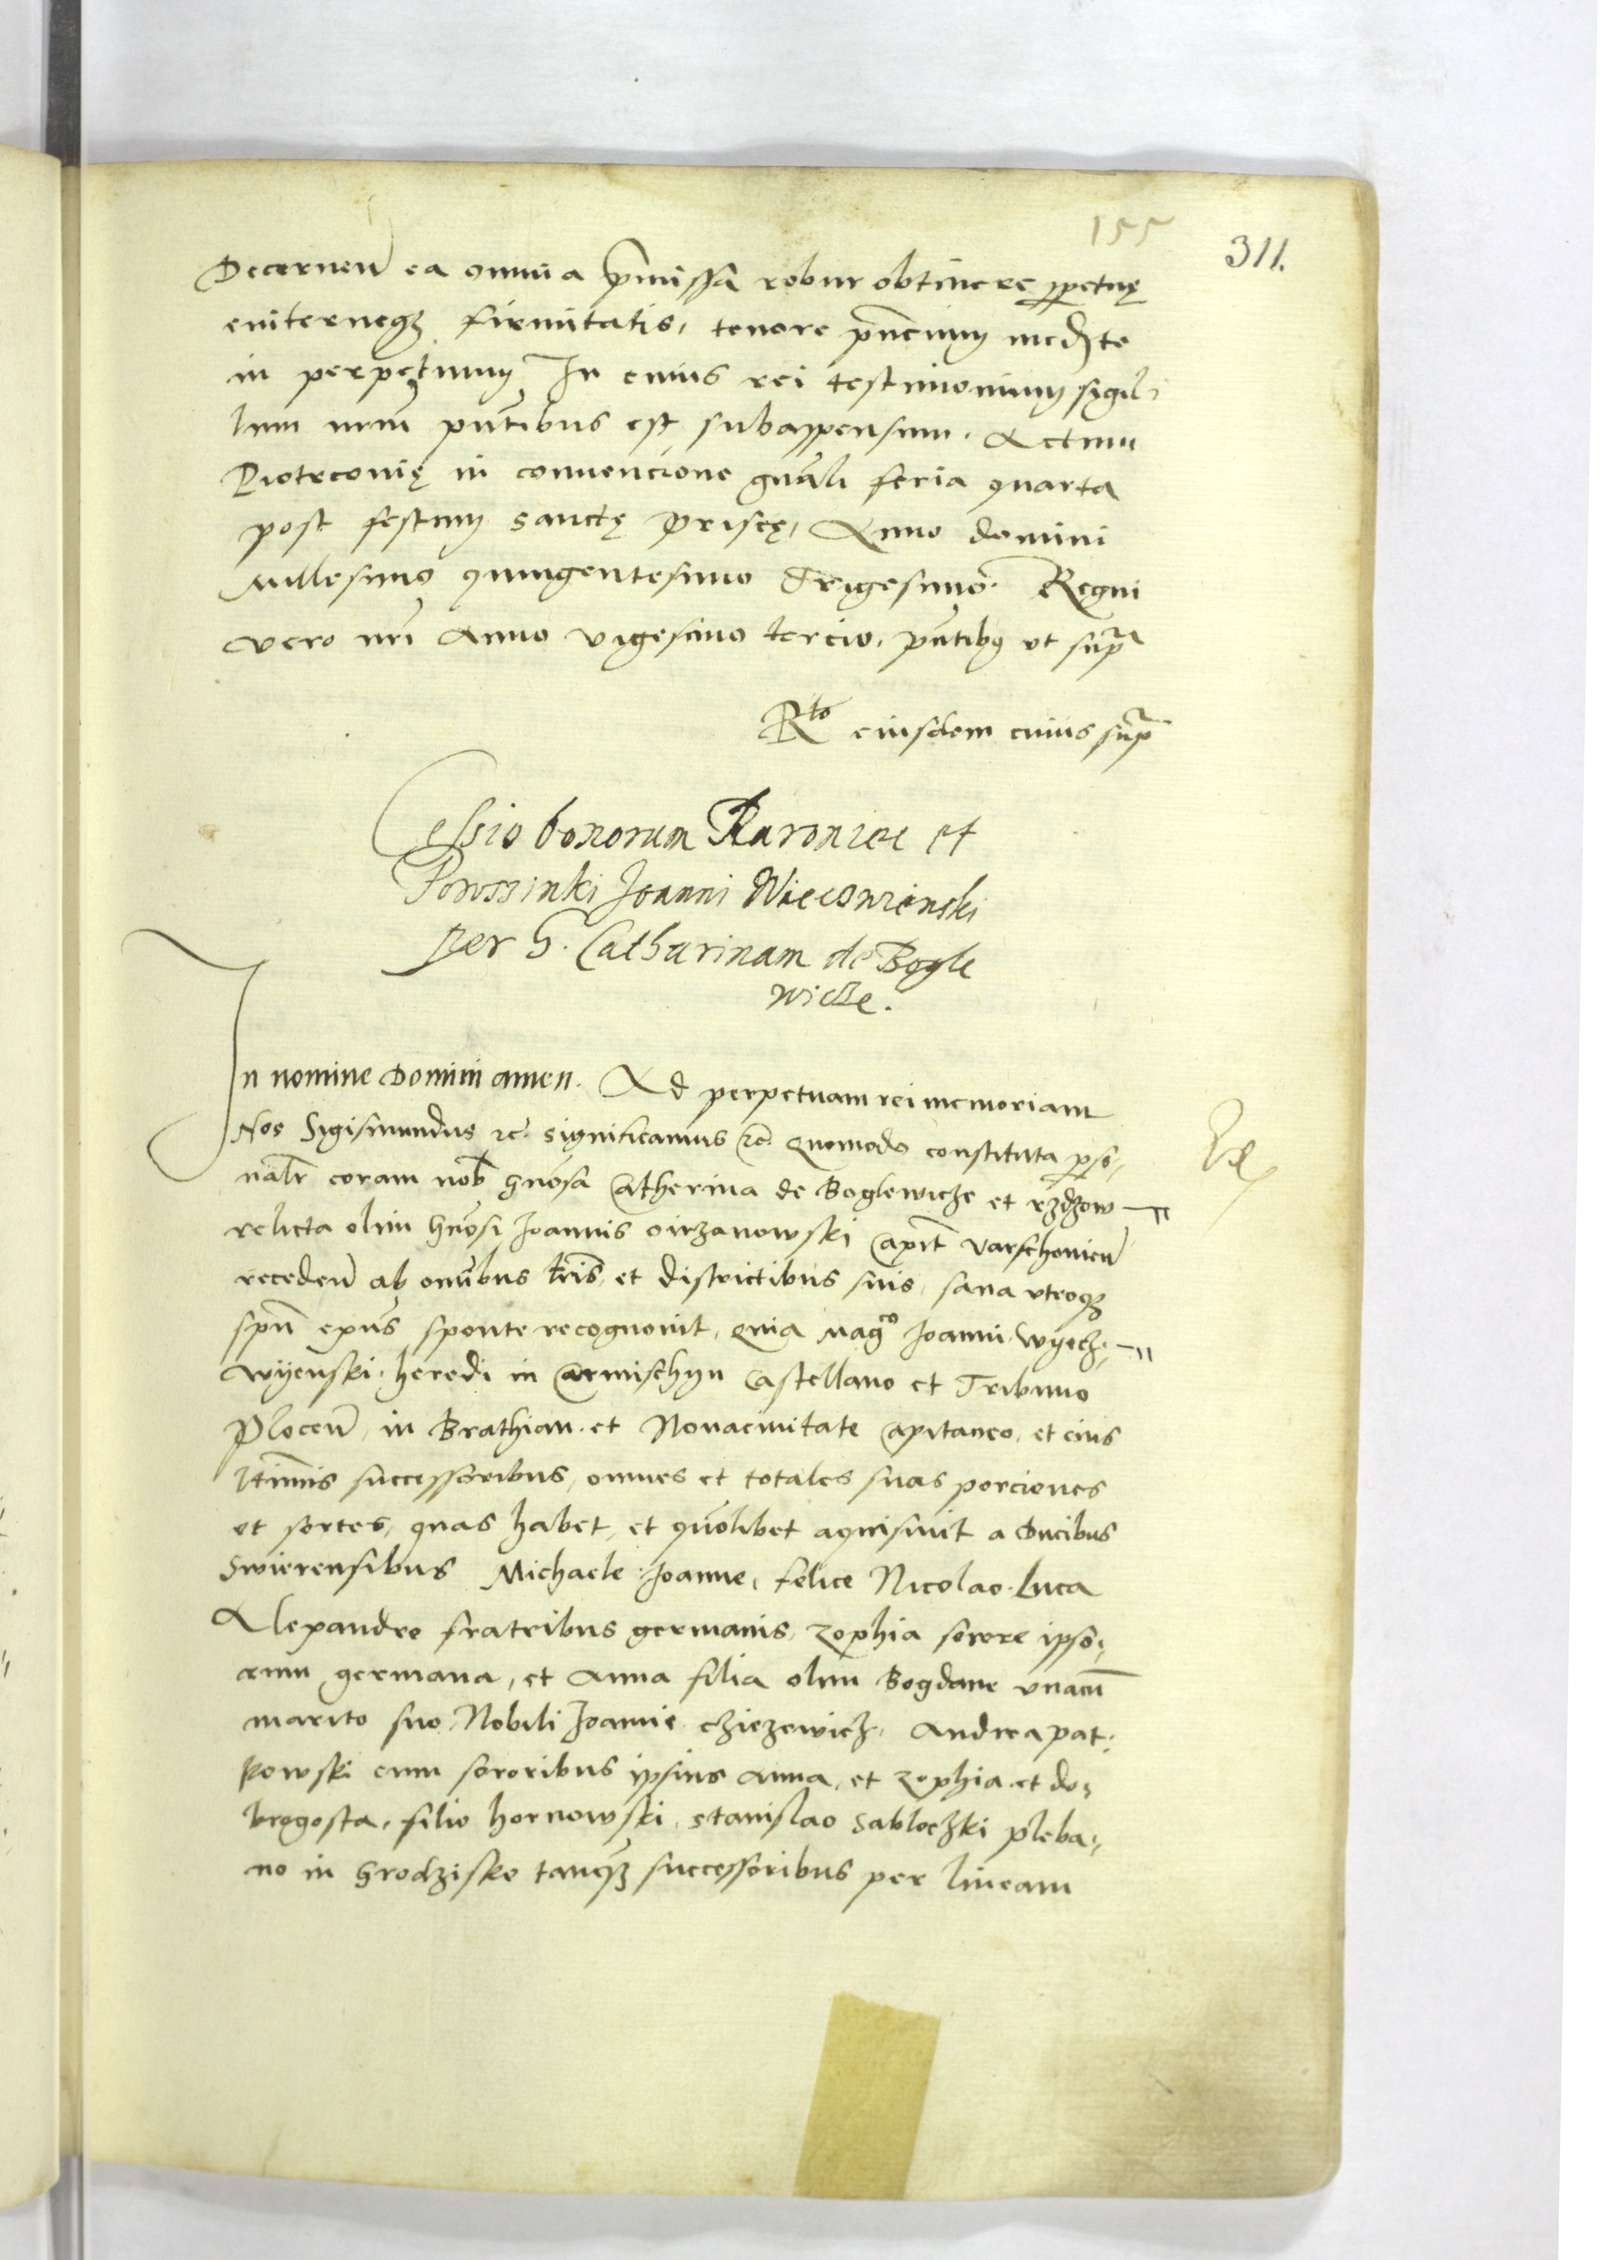 155
311.
Decernen ea omnia pmissa robur obtinere ppetuę
euiterneqȝ firmitatis, tenore pncium medte
in perpetuum In cuius rei testimonium sigil,
lum nrm pntibus est subappensum. Actum
Piotrconię in convencione gnali feria quarta
post festum sanctę Priscę, Anno domini
Millesimo quingentesimo Trigesimo. Regni
vero nri Anno vigesimo tercio, pntibus ut supra
Rto eiusdem cuius supra
Cessio bonorum Raroniee et
Porossinki Joanni Wieczwienski
per G. Catharinam de Bogle
wicze.
In nomine Domini amen. Ad perpetuam rei memoriam
Nos Sigismundus rc. significamus rc. Quomodo constituta perso,
nalr coram nob gnosa Catherina de Boglewicze et rzdzow
relicta olim gnosi Joannis oirzanowski Capit Varschovien
receden ab omibus tris et districtibus suis, sana utroqȝ
spn expns sponte recognovit, Quia Magco Joanni Wyecz,
wyenski heredi in Carnischyn Castellano et Tribuno
Plocen, in Brathian et Novacivitate Capitaneo, et eius
ltimis successoribus, omnes et totales suas porciones
et sortes, quas habet, et quolibet aquisivit a Ducibus
Swierensibus Michaele Joanne, felice Nicolao Luca
Alexandro fratribus germanis, Zophia sorore ipso,
rum germana, et Anna filia olim Bogdane unacum
marito suo Nobili Joanne chiezewicz, Andrea pat,
kowski cum sororibus ipsius Anna, et Zophia et do,
brogosta, filio hornowski, Stanislao Sabloczki pleba,
no in Grodzisko tanqȝ successoribus per lineam